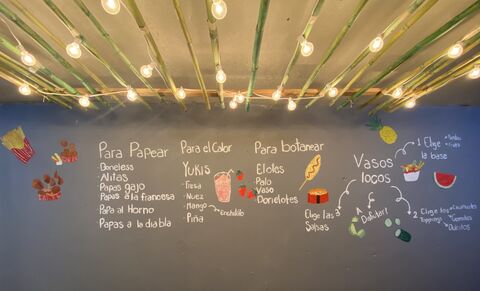 Para Papear
Boneless
Alitas
Papas gajo
Papas a la francesa
Papa al Horno
Papas a la diabla
Para el Calor
YUKIS
- Fresa
- Nuez
- Mango
Enchilado
- Piña
Para botanear
Elotes
Palo
Vaso
Dorielotes
Elige las
Salsas
3
Vasos
locos
A
Disfrutar!
1 Elige
la base
2 Elige los
Toppings